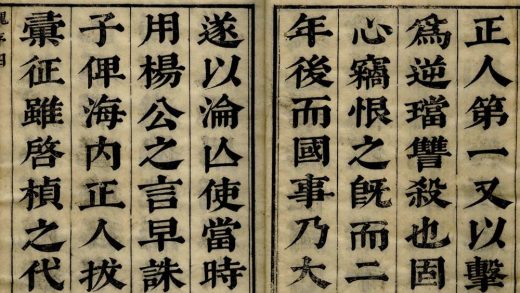 正人第一又以擊
爲逆璫讐殺也固
心竊恨之旣而二
年後而國事乃大
遂以淪亾使當時
用楊公之言早誅
子俾海内正人拔
彚征雖啓楨之代